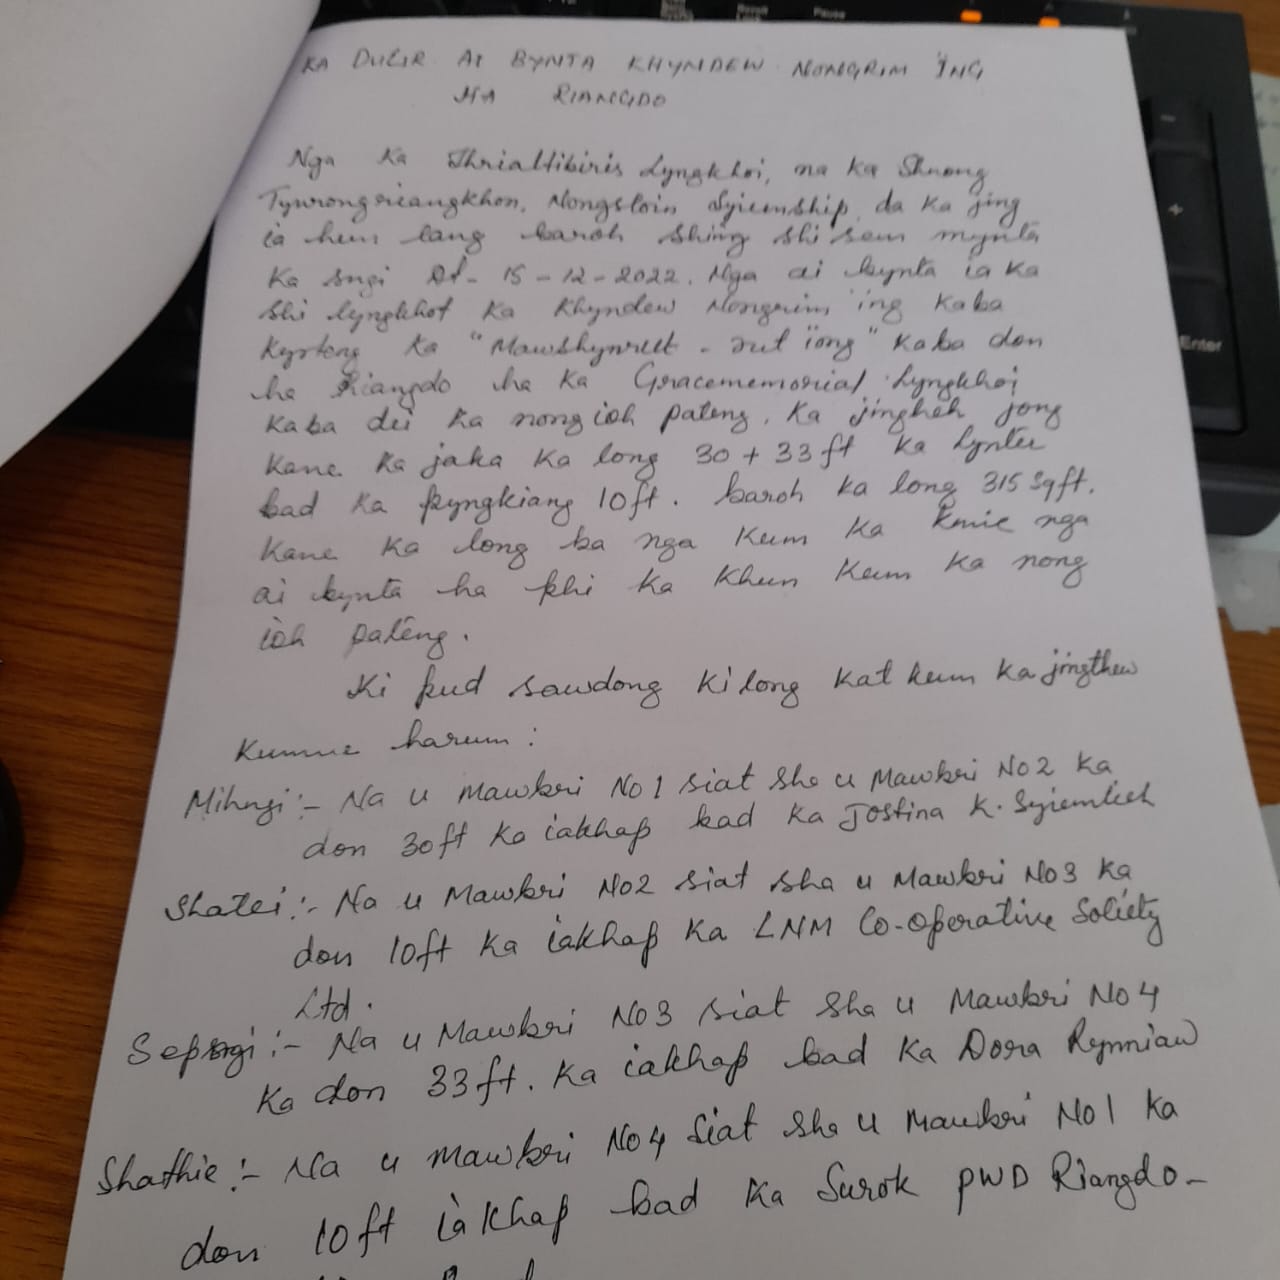 KA DULIR AI BYNTA KHYNDEW NONGRIM ÏNG
HA RIANGDO
Nga Ka Thrialtibiris Lyngkhoi, na ka Shnong
Tynrongriangkhon, Nongstoin Syiemship, da ka jing
ia hun lang baroh shiïng shi sem mynta
Ka sngi Dt- 15-12-2022. Nga ai bynta ia ka
shi lyngkhot ka Khyndew Nongrim ïng kaba
kyrteng ka "Mawshynrut - rut ïong" kaba don
ha Riangdo ha ka Gracememorial Lyngkhoi
kaba dei ka nongioh pateng. Ka jingheh jong
kane ka jaka ka long 30 + 33 ft ka lynter
bad ka pyngkiang 10ft. baroh ka long 315 Sqft.
Kane ka long ba nga kum ka kmie nga
ai bynta ha phi ka khun kum ka nong
ioh pateng.
Ki pud sawdong ki long kat kum ka jingthew
kumne harum :
Mihngi :- Na u Mawbri No 1 siat sha u Mawbri No 2 ka
don 30ft ka iakhap bad ka Jostina K. Syiemlieh
Shatei :- Na u Mawbri No2 siat sha u Mawbri No3 ka
don 10ft ka iakhap ka LNM Co-operative Soliety
Ltd.
Sepngi :- Na u Mawbri No3 siat sha u Mawbri No 4
ka don 33ft. ka iakhap bad ka Dora Rynniaw
Shathie :- Na u Mawbri No4 siat sha u Mawbri No1 ka
don 10ft iakhap bad ka Surok PWD Riangdo-
Enter